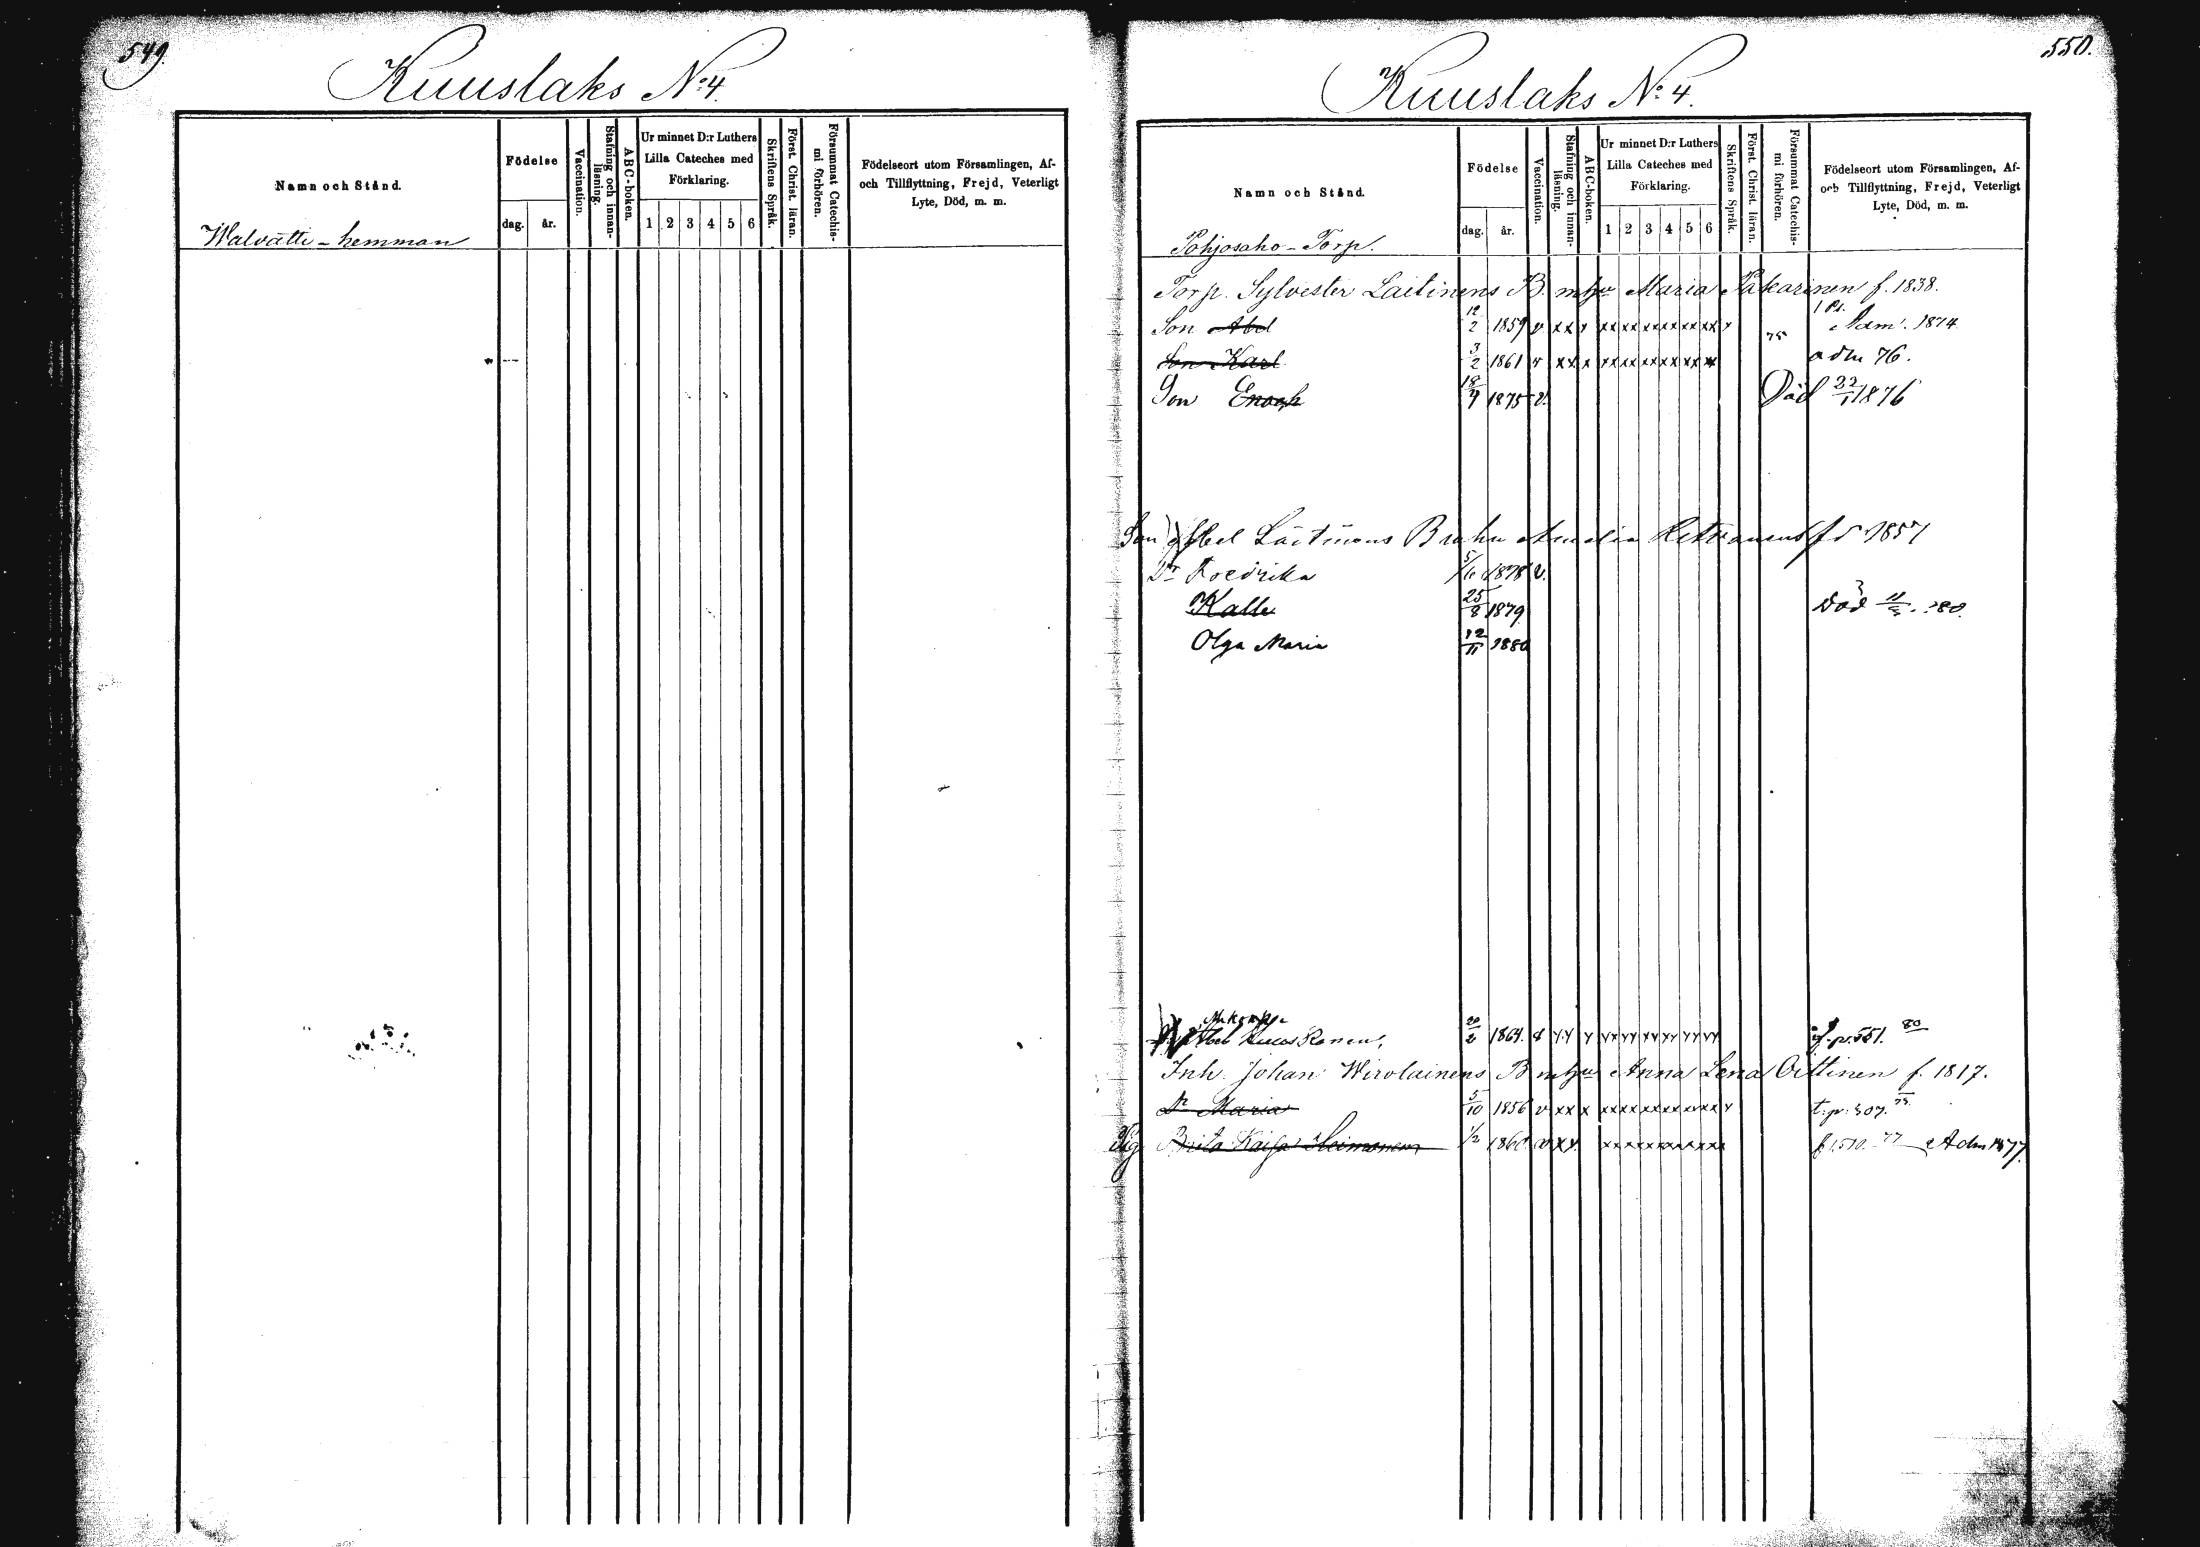 549.
Kuuslaks No 4.
Namn och Stånd.
Födelse
dag. år.
Vaccination.
Stafning och innan-läsning.
ABC-boken.
Ur minnet D:r Luthers
Lilla Cateches med
Förklaring.
1 2 3 4 5 6
Skriftens Språk.
Först. Christ. läran.
Försummat Catechis-mi förhören.
Födelseort utom Församlingen, Af-
och Tillflyttning, Frejd, Veterligt
Lyte, Död, m. m.
Walvatti-hemman
550.
Kuuslaks No 4.
Namn och Stånd.
Födelse
dag. år.
Vaccination.
Stafning och innan-läsning.
ABC-boken.
Ur minnet D:r Luthers
Lilla Cateches med
Förklaring.
1 2 3 4 5 6
Skriftens Språk.
Först. Christ. läran.
Försummat Catechis-mi förhören.
Födelseort utom Församlingen, Af-
och Tillflyttning, Frejd, Veterligt
Lyte, Död, m. m.
Pohjosaho-Torp.
Torp. Sylvester Laitinens B. mhu Maria Pakarinen f. 1838.
Son Abel 12/2 1859 v xx x xx xx xx xx xx xx x 75 Adm. 1874
Son Karl 3/2 1861 v xx x xx xx xx xx xx xx adm 76.
Son Enoch 18/4 1875 v. Död 22/1 1876
Son Abel Laitinens B Amalia 1857
Dr Fredrika 5/6 1878 v.
Kalle 25/8 1879 död 80.
Olga Maria 12/11 1880
20/2 1864. p. 551. 80
Inh. Johan Wirolainens B mhu Anna Lena Oittinen f. 1817.
Dr Maria 5/10 1856 v xx x xx xx xx xx xx xx x t. p. 307. 75.
Pig Brita Kaisa Heimonen 1/2 1860 v xx. xx xx xx xx xx xx 77 Adm 1877